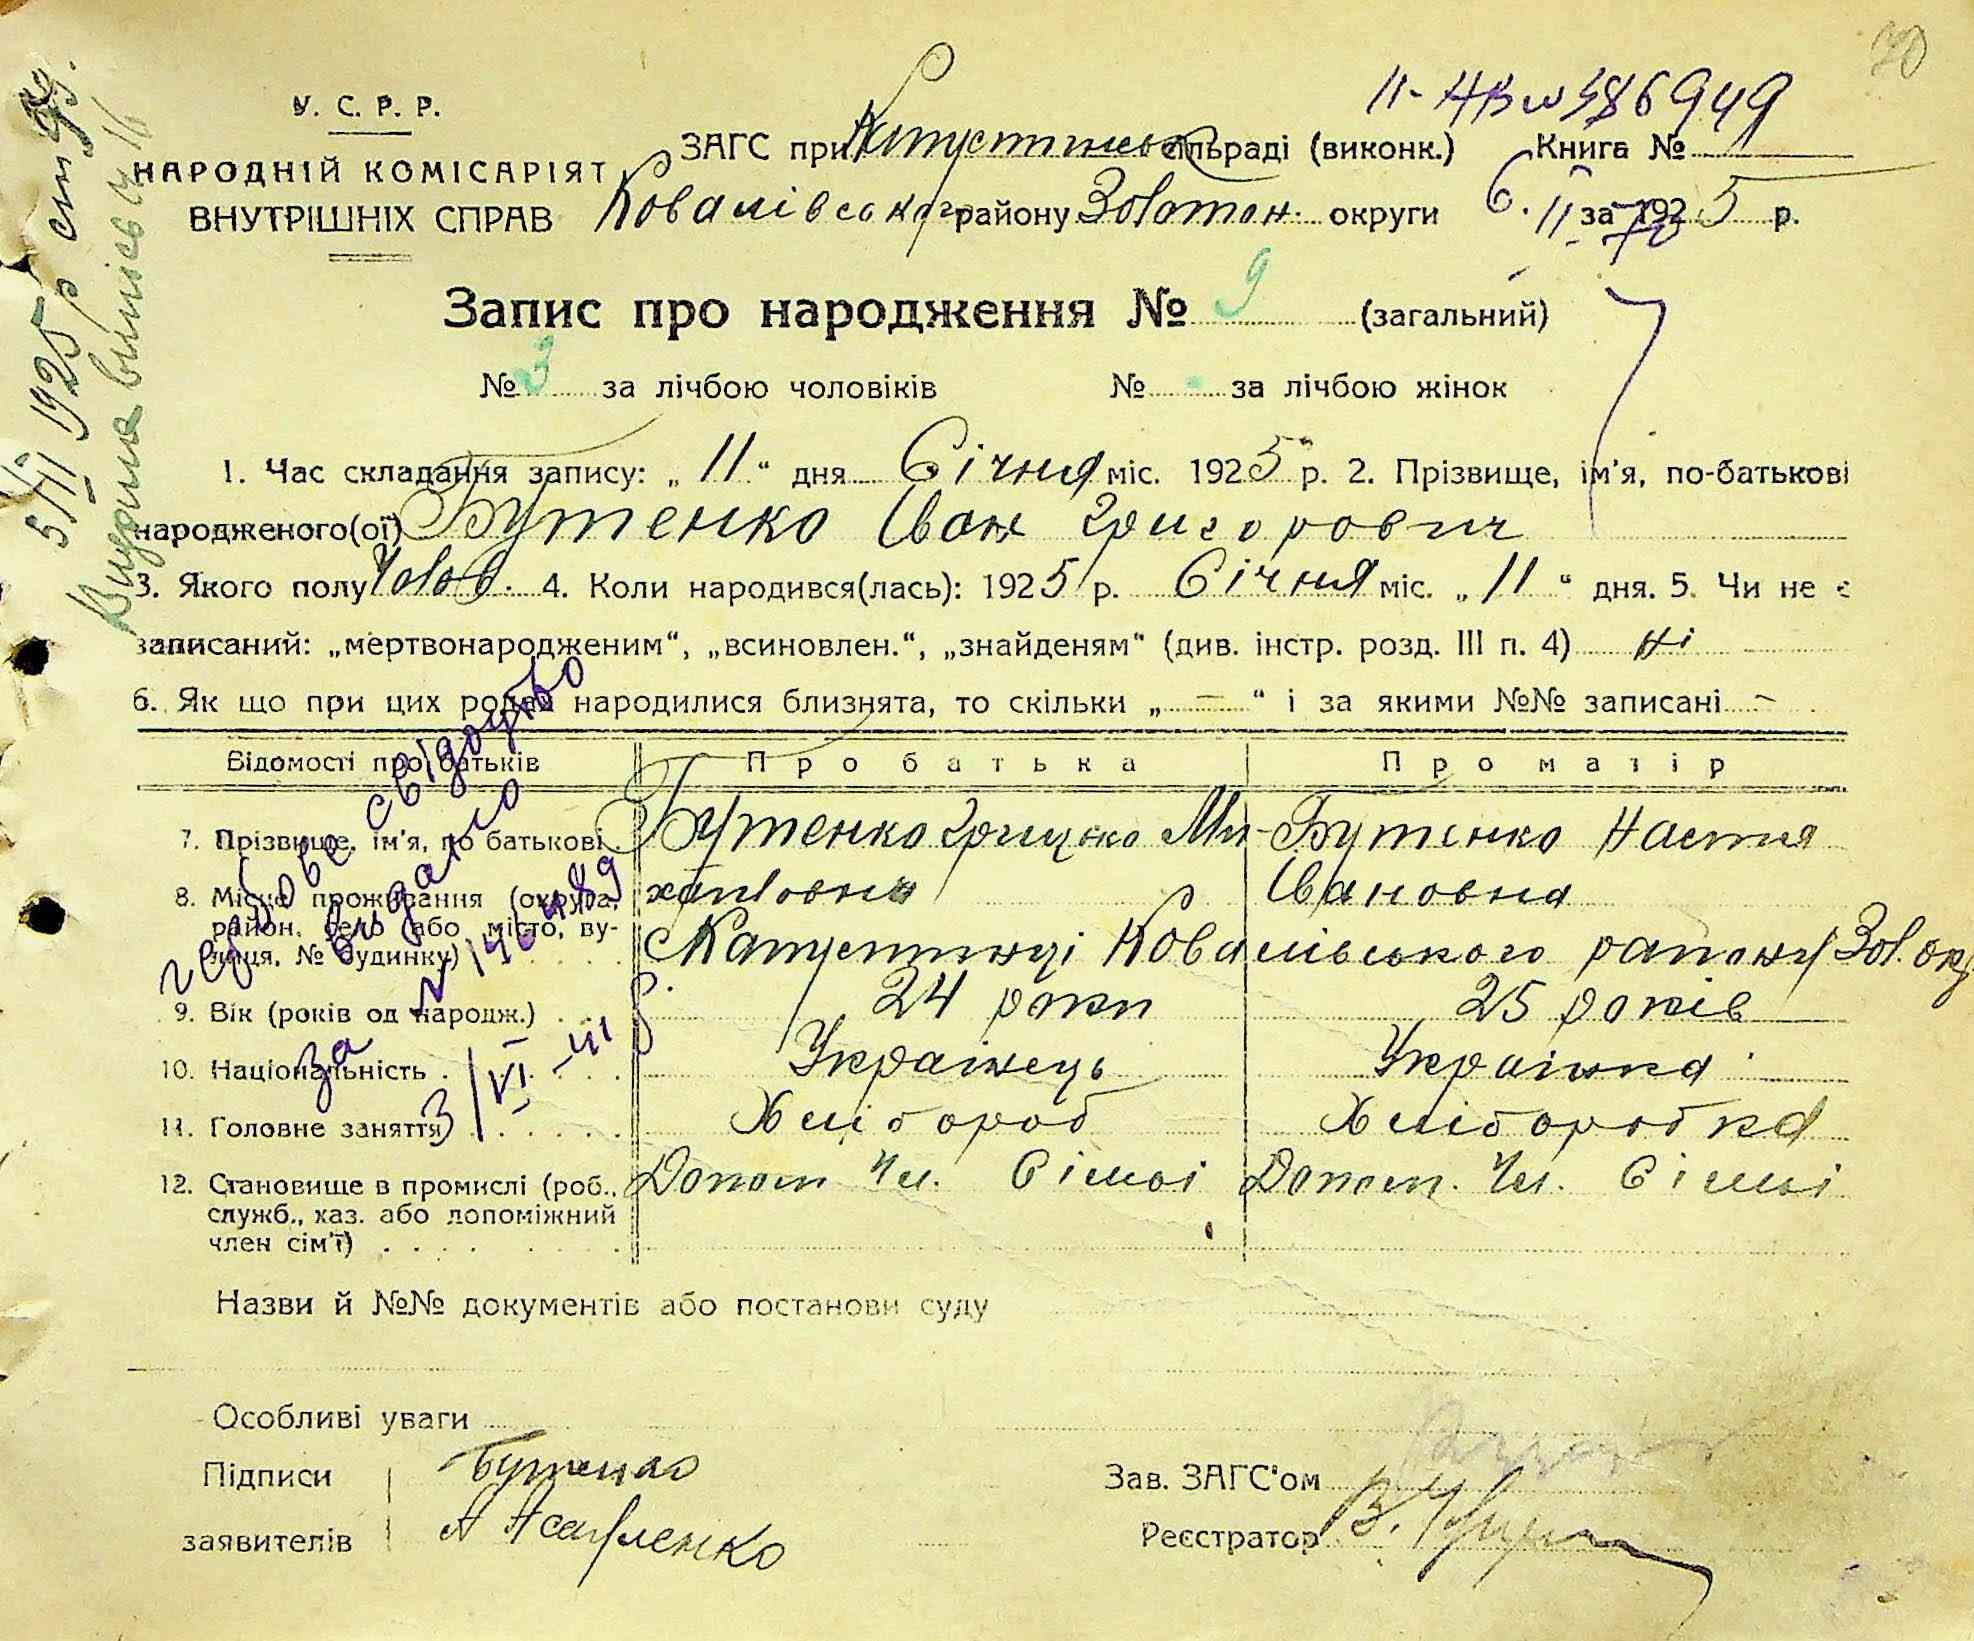 70
II-АВ № 586949
У. С. Р. Р.
НАРОДНІЙ КОМІСАРІЯТ
ВНУТРІШНІХ СПРАВ
ЗАГС при сільраді (виконк.) Книга №
Ковалівського району Золотон. округи за 1925 р.
6.II-70
Запис про народження № 9 (загальний)
№ 3 за лічбою чоловіків № - за лічбою жінок
1. Час складання запису: „11“ дня Січня міс. 1925 р. 2. Прізвище, ім'я, по-батькові
народженого(ої) Бутенко Іван Григорович
3. Якого полу Чолов. 4. Коли народився(лась): 1925 р. Січня міс. „11“ дня. 5. Чи не є
записаний: „мертвонародженим“, „всиновлен.“, „знайденям“ (див. інстр. розд. III п. 4) Ні
6. Як що при цих родах народилися близнята, то скільки „ — “ і за якими №№ записані —
Відомості про батьків Про батька Про матір
7. Прізвище, ім'я, по батькові Бутенко Грицько Ми- Бутенко Настя
хайлович Івановна
8. Місце проживання (округа,
район, село або місто, ву-
лиця, № будинку) Капустинці Ковалівського району Зол. окр
9. Вік (років од народж.) 24 роки 25 років
10. Національність Українець Українка
11. Головне заняття Хлібороб Хліборобка
12. Становище в промислі (роб.,
служб., хаз. або допоміжний
член сім'ї) Допом Чл. Сімьі Допом. Чл. Сімьі
Назви й №№ документів або постанови суду
Особливі уваги
Підписи
заявителів
Бутенко
Зав. ЗАГС'ом
Реєстратор
5/III 1925 р
Видана випись
гербове свідоцтво
видано
№ 146489
за
3/VI-41